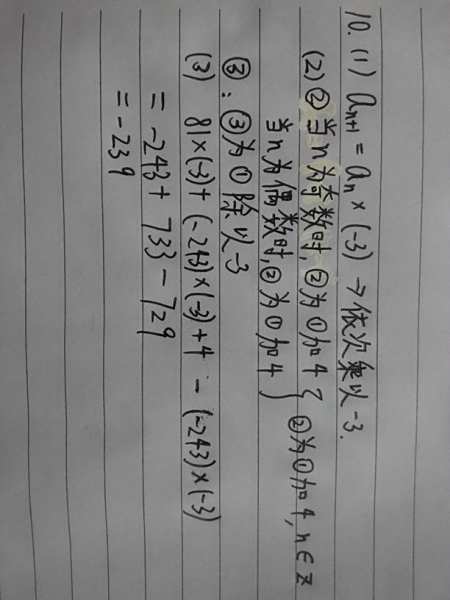 10. (1) aₙ₊₁ = aₙ × (-3) → 依次乘以-3.
(2) ② 当n为奇数时, ②为①加4 } ②为①加4, n∈Z
当n为偶数时, ②为①加4
③: ③为①除以-3
(3) 81×(-3)+(-243)×(-3)+4 - (-243)×(-3)
= -243 + 733 - 729
= -239